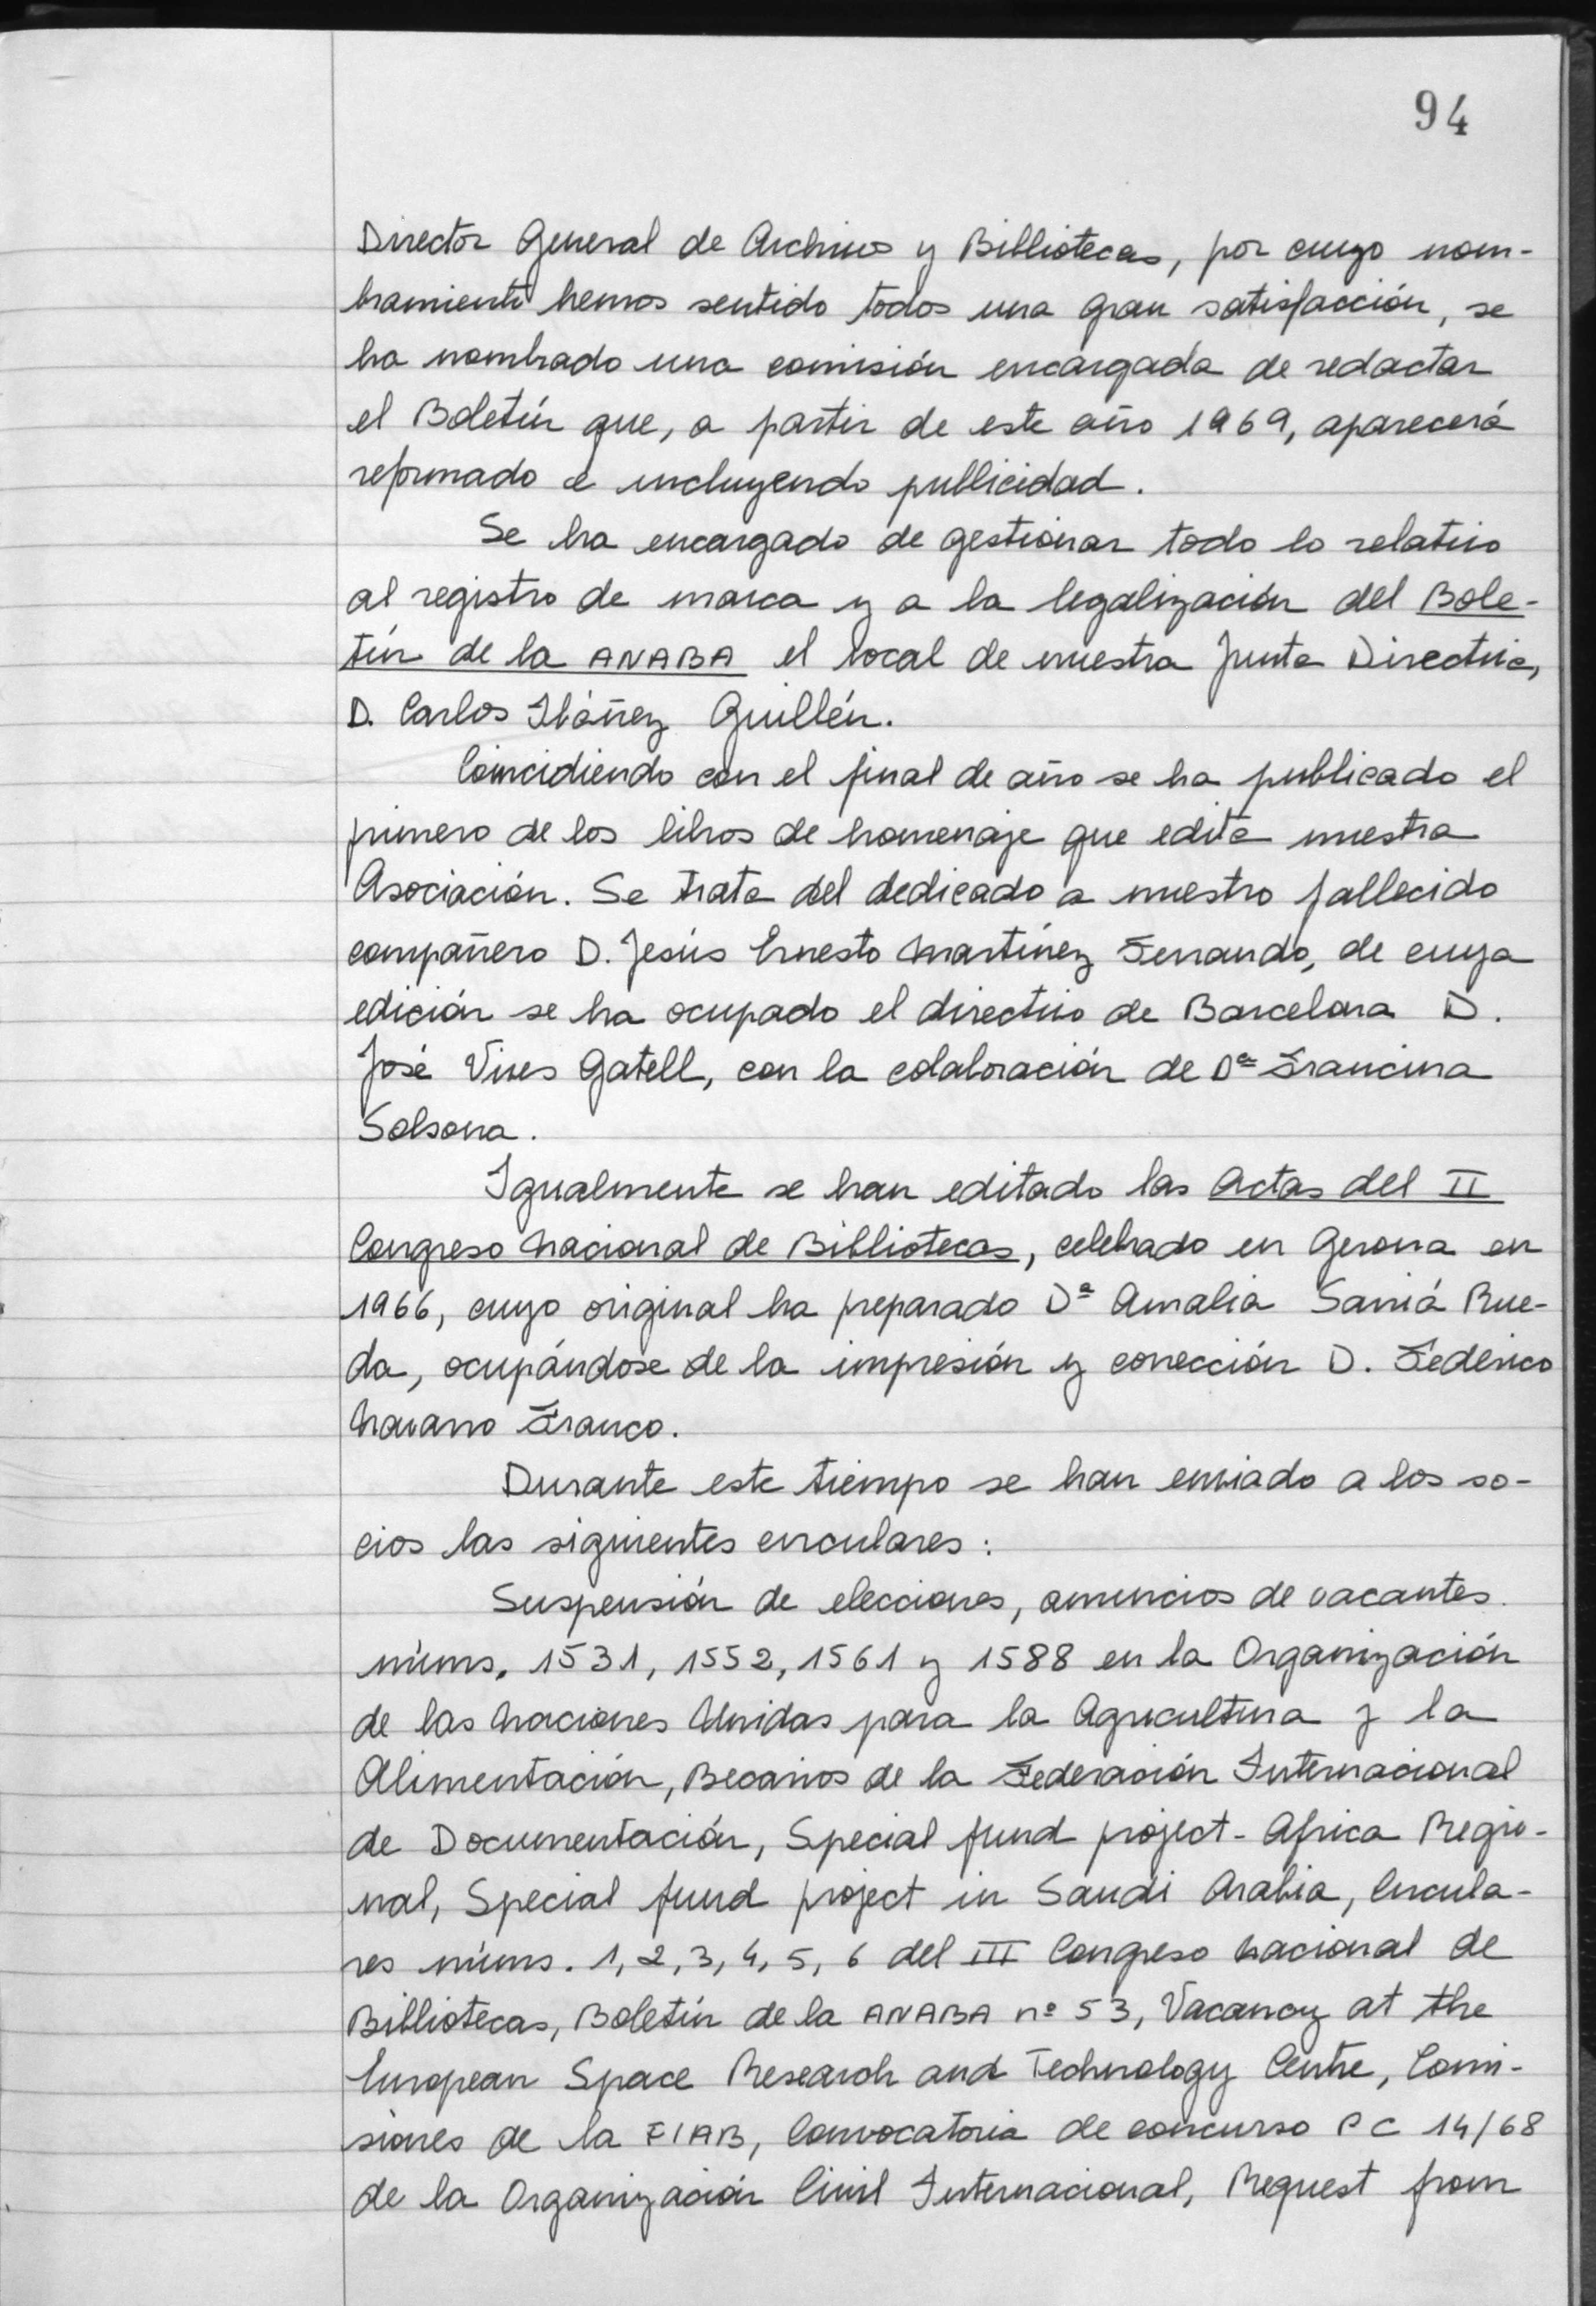 94
Director General de Archivos y Bibliotecas, por cuyo nom-
bramiento hemos sentido todos una gran satisfacción, se
ha nombrado una comisión encargada de redactar
el Boletín que, a partir de este año 1969, aparecerá
reformado e incluyendo publicidad.
Se ha encargado de gestionar todo lo relativo
al registro de marca y a la legalización del Bole-
tín de la ANABA el vocal de nuestra Junta Directiva,
D. Carlos Ibáñez Guillén.
Coincidiendo con el final de año se ha publicado el
primero de los libros de homenaje que edita nuestra
Asociación. Se trata del dedicado a nuestro fallecido
compañero D. Jesús Ernesto Martínez Ferrando, de cuya
edición se ha ocupado el directivo de Barcelona D.
José Vives Gatell, con la colaboración de Dª Francina
Solsona.
Igualmente se han editado las Actas del II
Congreso Nacional de Bibliotecas, celebrado en Gerona en
1966, cuyo original ha preparado Dª Amalia Sarriá Rue-
da, ocupándose de la impresión y corrección D. Federico
Navarro Franco.
Durante este tiempo se han enviado a los so-
cios las siguientes circulares:
Suspensión de elecciones, anuncios de vacantes
núms. 1531, 1552, 1561 y 1588 en la Organización
de las Naciones Unidas para la Agricultura y la
Alimentación, Becarios de la Federación Internacional
de Documentación, Special fund project - Africa Regio-
nal, Special fund project in Saudi Arabia, Circula-
res núms. 1, 2, 3, 4, 5, 6 del III Congreso Nacional de
Bibliotecas, Boletín de la ANABA nº 53, Vacancy at the
European Space Research and Technology Centre, Comi-
siones de la FIAB, Convocatoria de concurso PC 14/68
de la Organización Civil Internacional, Request from